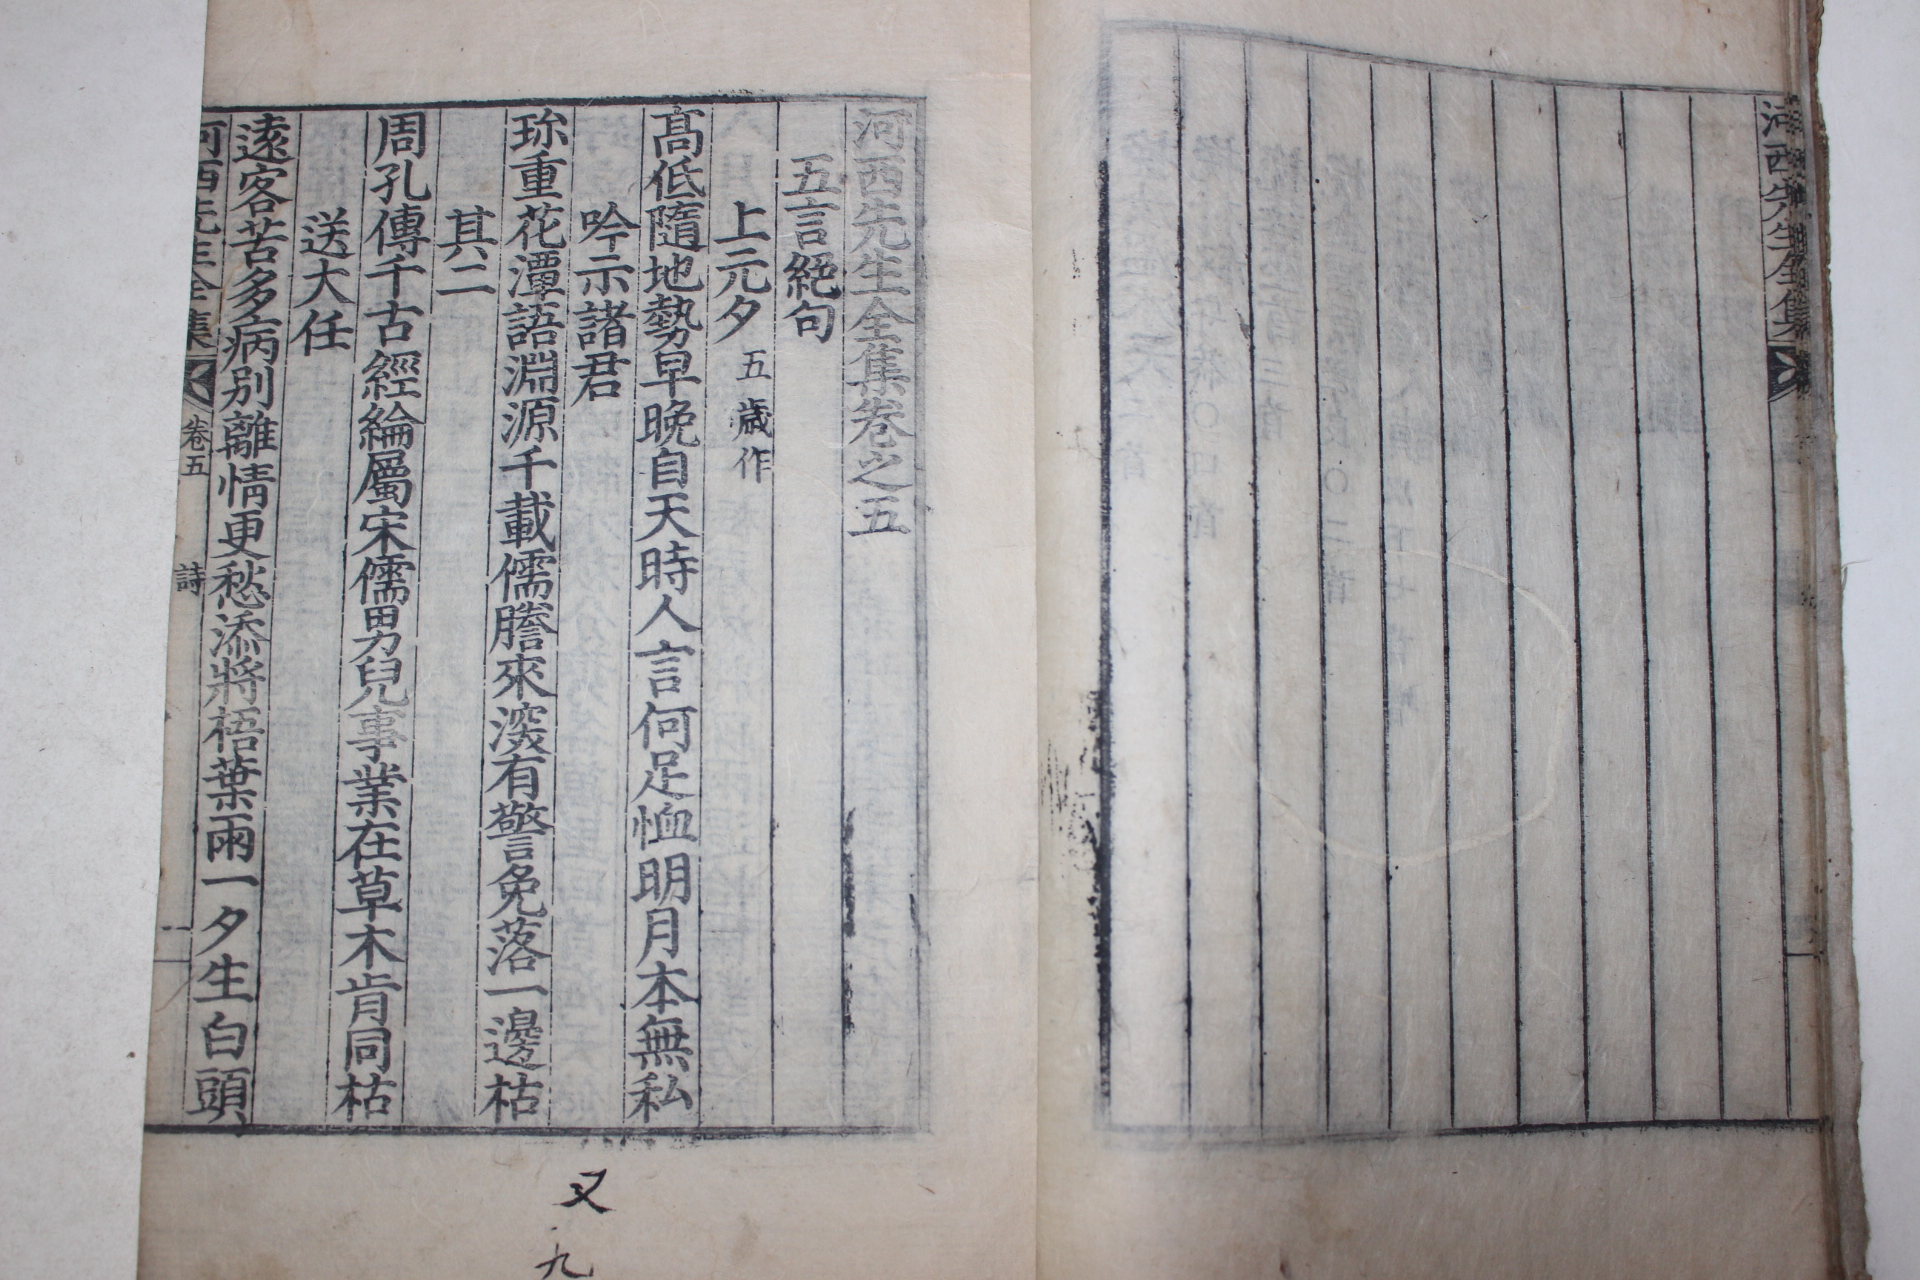 河西先生全集
河西先生全集卷之五
五言絕句
上元夕 五歲作
高低隨地勢早晚自天時人言何足恤明月本無私
吟示諸君
珎重花潭語淵源千載儒謄來深有警免落一邊枯
其二
周孔傳千古經綸屬宋儒男兒事業在草木肯同枯
送大任
遠客苦多病別離情更愁添將梧葉雨一夕生白頭
河西先生全集 卷五 詩 一
又
九